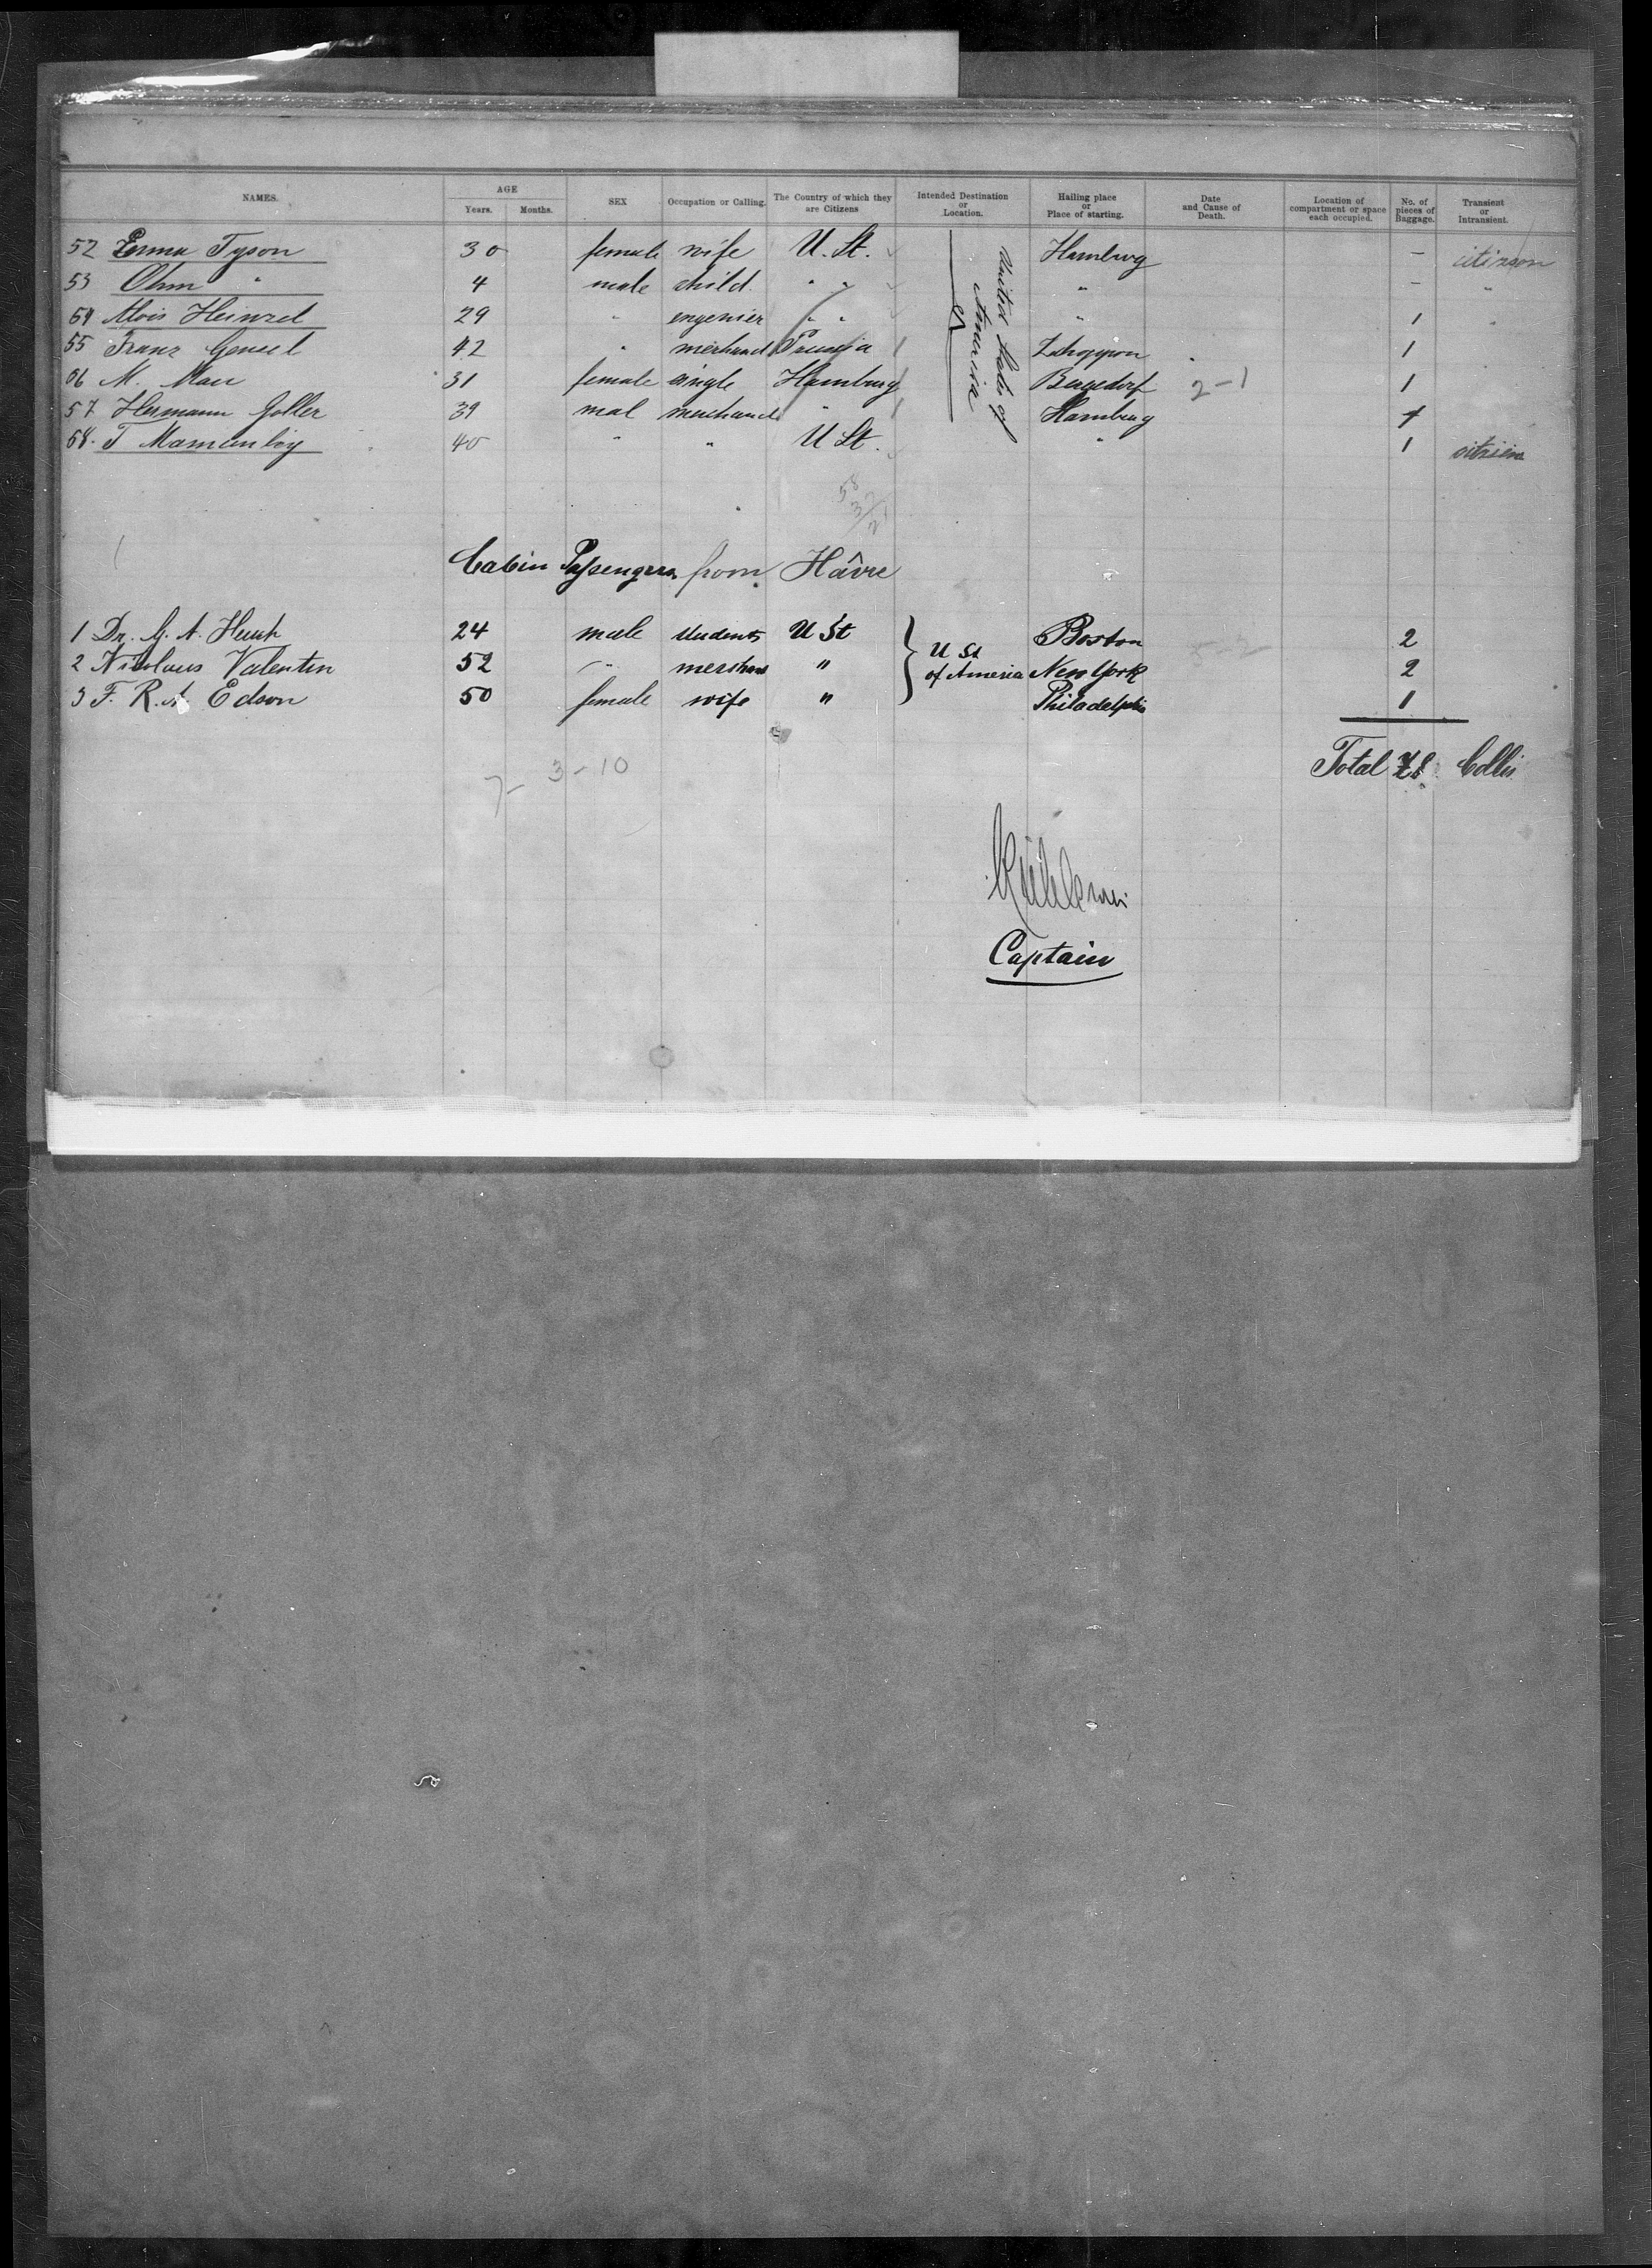 NAMES. AGE Years. Months. SEX Occupation or Calling. The Country of which they are Citizens Intended Destination or Location. Hailing place or Place of starting. Date and Cause of Death. Location of compartment or space each occupied. No. of pieces of Baggage. Transient or Intransient.
52 Emma Tyson 30 female wife U. St. United States of America Hamburg –
53 Ohm " 4 male child " " " – "
54 Alois Heinzel 29 " engenier " " " 1 "
55 Franz 42 " merchand Prussia 1
56 M. Mau 31 female single Hamburg Bergedorf 2-1 1
57 Hermann Goller 39 mal merchand " Hamburg
58. T 40 " " U St. " 1
58
37
21
Cabin Passengers from Hâvre
1 Dr. G. A. 24 male students U St U St of America Boston 2
2 Nicolaus Valentin 52 " merchand " New York 2
3 F. R. A. Edson 50 female wife " Philadelphia 1
Total Collis
7- 3-10
Captain